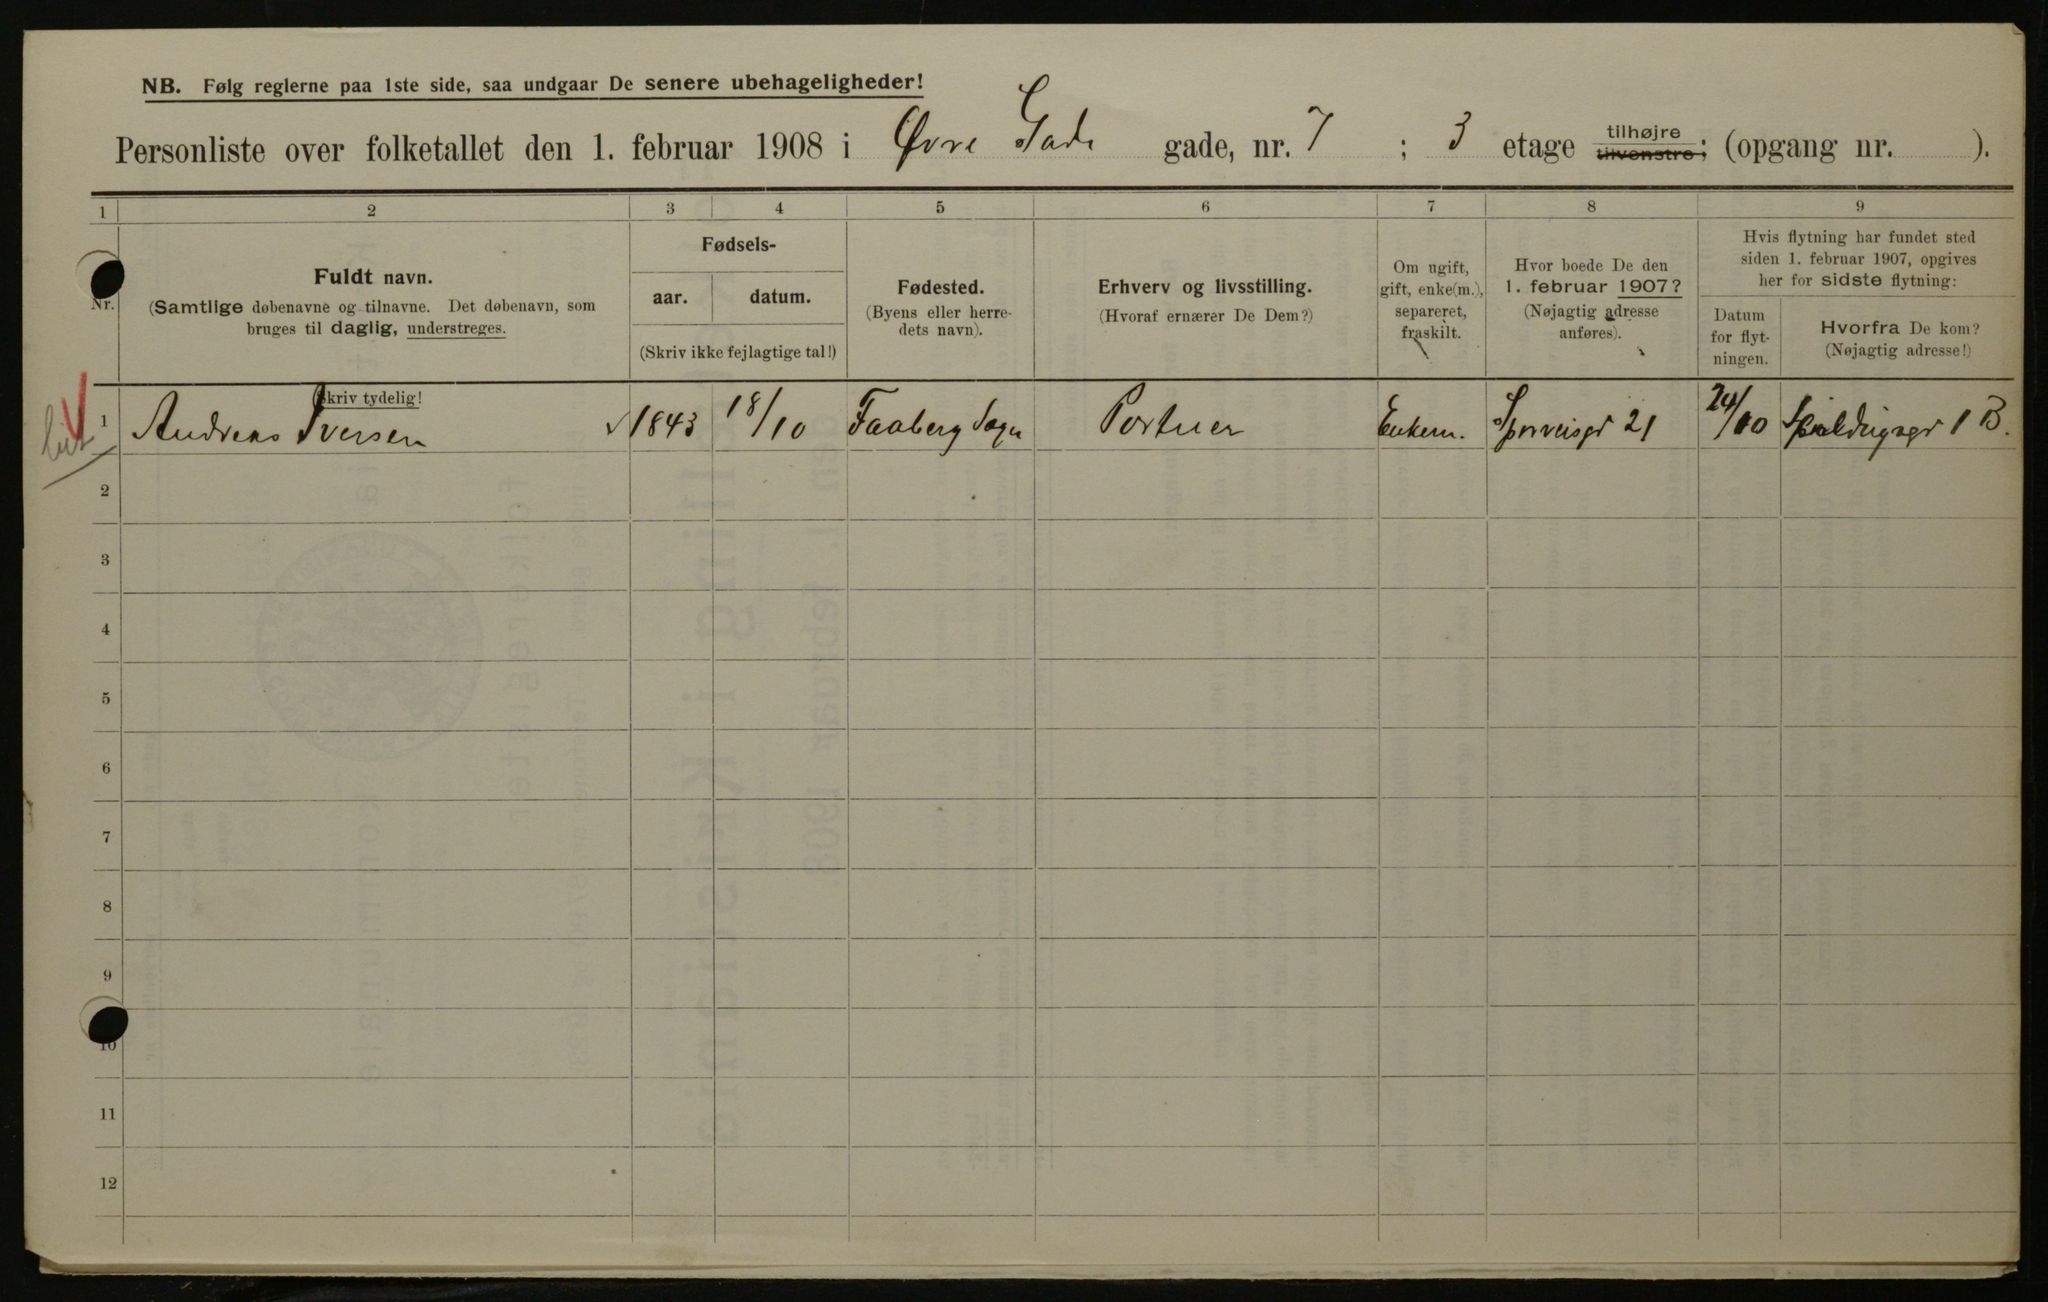 NB. Følg reglerne paa 1ste side, saa undgaar De senere ubehageligheder!
Personliste over folketallet den 1. februar 1908 i Øvre Gade gade, nr. 7 ; 3 etage tilhøjre tilvenstre; (opgang nr. ).
1 2 3 4 5 6 7 8 9
Nr.
Fuldt navn.
(Samtlige døbenavne og tilnavne. Det døbenavn, som
bruges til daglig, understreges.
Fødsels-
aar. datum.
(Skriv ikke fejlagtige tal!)
Fødested.
(Byens eller herre-
dets navn).
Erhverv og livsstilling.
(Hvoraf ernærer De Dem?)
Om ugift,
gift, enke(m.),
separeret,
fraskilt.
Hvor boede De den
1. februar 1907?
(Nøjagtig adresse
anføres).
Hvis flytning har fundet sted
siden 1. februar 1907, opgives
her for sidste flytning:
Datum
for flyt-
ningen.
Hvorfra De kom?
(Nøjagtig adresse!)
(Skriv tydelig!
1 Andreas Iversen 1843 18/10 Faaberg Sogn Portner Enkem. Sporveisgt 21 24/10 1 B.
2
3
4
5
6
7
8
9
10
11
12